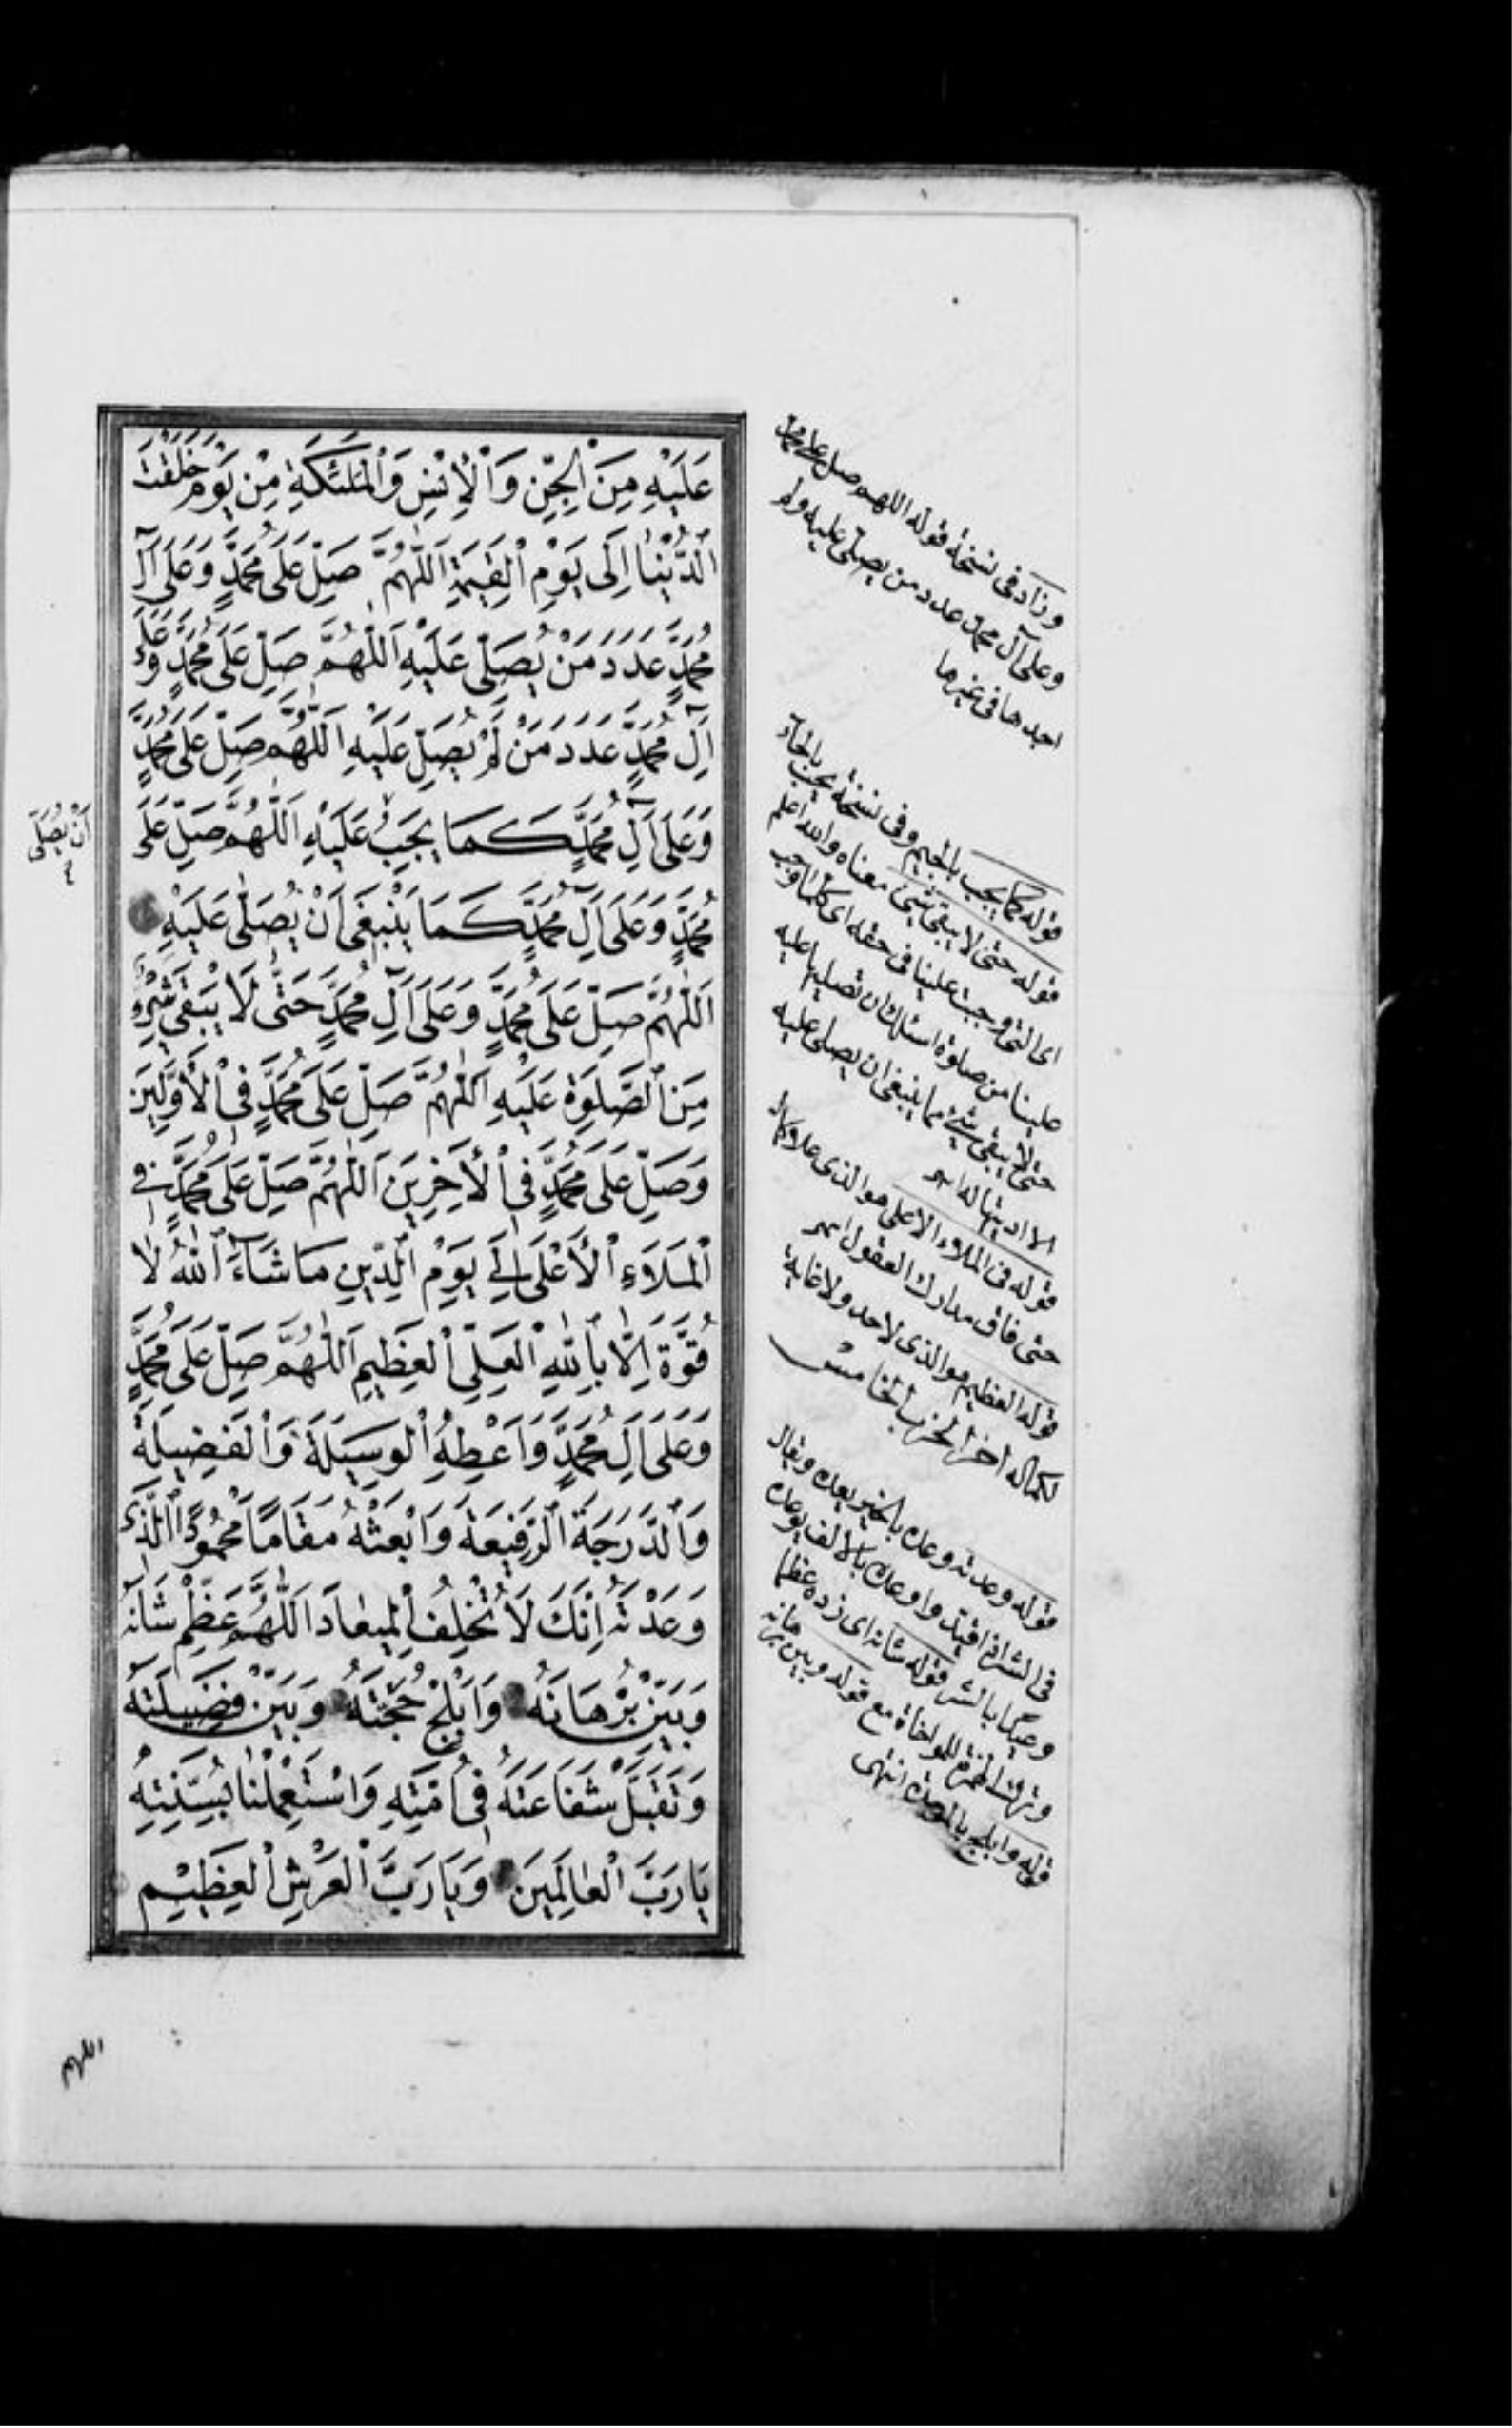 عَلَيْهِ مِنَ الْجِنِّ وَالْإِنْسِ وَالْمَلٰئِكَةِ مِنْ يَوْمِ خَلَقْتَ
الدُّنْيَا اِلَى يَوْمِ الْقِيٰمَةِ اَللّٰهُمَّ صَلِّ عَلَى مُحَمَّدٍ وَعَلَى آلِ
مُحَمَّدٍ عَدَدَ مَنْ يُصَلِّى عَلَيْهِ اَللّٰهُمَّ صَلِّ عَلَى مُحَمَّدٍ وَعَلَى
اٰلِ مُحَمَّدٍ عَدَدَ مَنْ لَمْ يُصَلِّ عَلَيْهِ اَللّٰهُمَّ صَلِّ عَلَى مُحَمَّدٍ
وَعَلَى اٰلِ مُحَمَّدٍ كَمَا يَجِبُ عَلَيْهِ اَللّٰهُمَّ صَلِّ عَلَى
مُحَمَّدٍ وَعَلَى اٰلِ مُحَمَّدٍ كَمَا يَنْبَغِى اَنْ يُصَلّٰى عَلَيْهِ
اَللّٰهُمَّ صَلِّ عَلَى مُحَمَّدٍ وَعَلَى اٰلِ مُحَمَّدٍ حَتّٰى لَا يَبْقٰى شَىْءٌ
مِنَ الصَّلٰوةِ عَلَيْهِ اَللّٰهُمَّ صَلِّ عَلَى مُحَمَّدٍ فِى الْأَوَّلِينَ
وَصَلِّ عَلَى مُحَمَّدٍ فِى الْأٰخِرِينَ اَللّٰهُمَّ صَلِّ عَلَى مُحَمَّدٍ فِى
الْمَلَاءِ الْأَعْلَى اِلَى يَوْمِ الدِّينِ مَا شَآءَ اللّٰهُ لَا
قُوَّةَ اِلَّا بِاللّٰهِ الْعَلِىِّ الْعَظِيمِ اَللّٰهُمَّ صَلِّ عَلَى مُحَمَّدٍ
وَعَلَى اٰلِ مُحَمَّدٍ وَاَعْطِهِ الْوَسِيلَةَ وَالْفَضِيلَةَ
وَالدَّرَجَةَ الرَّفِيعَةَ وَابْعَثْهُ مَقَامًا مَحْمُودًا الَّذِى
وَعَدْتَهُ اِنَّكَ لَا تُخْلِفُ الْمِيعَادَ اَللّٰهُمَّ عَظِّمْ شَانَهُ
وَبَيِّنْ بُرْهَانَهُ وَاَبْلِجْ حُجَّتَهُ وَبَيِّنْ فَضِيلَتَهُ
وَتَقَبَّلْ شَفَاعَتَهُ فِى اُمَّتِهِ وَاسْتَعْمِلْنَا بِسُنَّتِهِ
يَا رَبَّ الْعَالَمِينَ وَيَا رَبَّ الْعَرْشِ الْعَظِيْمِ
اَنْ يُصَلّٰى
وزاد فى نسخة قوله اللهم صل على محمد
وعلى آل محمد عدد من يصلى عليه ولم
اجدها فى غيرها
قوله كما يجب بالجيم وفى نسخة يحب بالحاء
قوله حتى لا يبقى شئ معناه والله اعلم
اى التى وجبت علينا فى حقه اى كلما وجب
علينا من صلوة اسئلك ان تصليها عليه
حتى لا يبقى شئ مما ينبغى ان يصلى عليه
قوله فى الملاء الاعلى هو الذى علا وكماله
حتى فاق مدارك العقول اهـ
قوله العظيم هو الذى لا حد ولا غاية
لكماله اخر الحزب الخامس
قوله وعدته وعد بالخير يعد ويقال
فى الشر اذا قيد واوعد بالالف يوعد
وعيدا بالشر قوله شانه اى زده عظما
وتهل الهمزة للمواخاة مع قوله وبين برهانه
قوله وابلج انتهى
اللهم